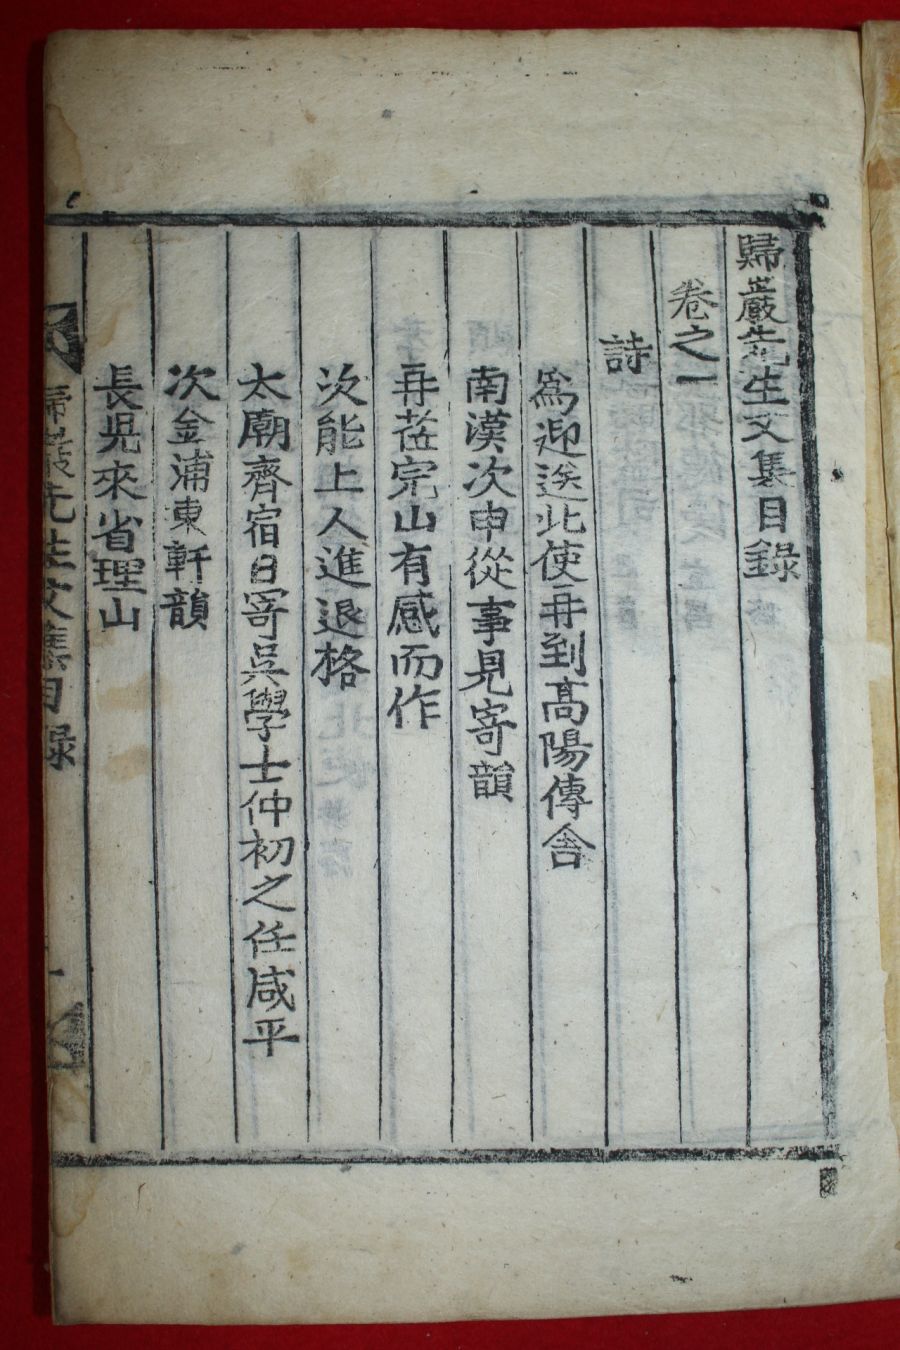 歸巖先生文集目錄
卷之一
詩
爲迎送北使再到高陽傳舍
南漢次申從事見寄韻
再莅完山有感而作
次能上人進退格
太廟齊宿日寄吳學士仲初之任咸平
次金浦東軒韻
長兒來省理山
歸巖先生文集目錄
一